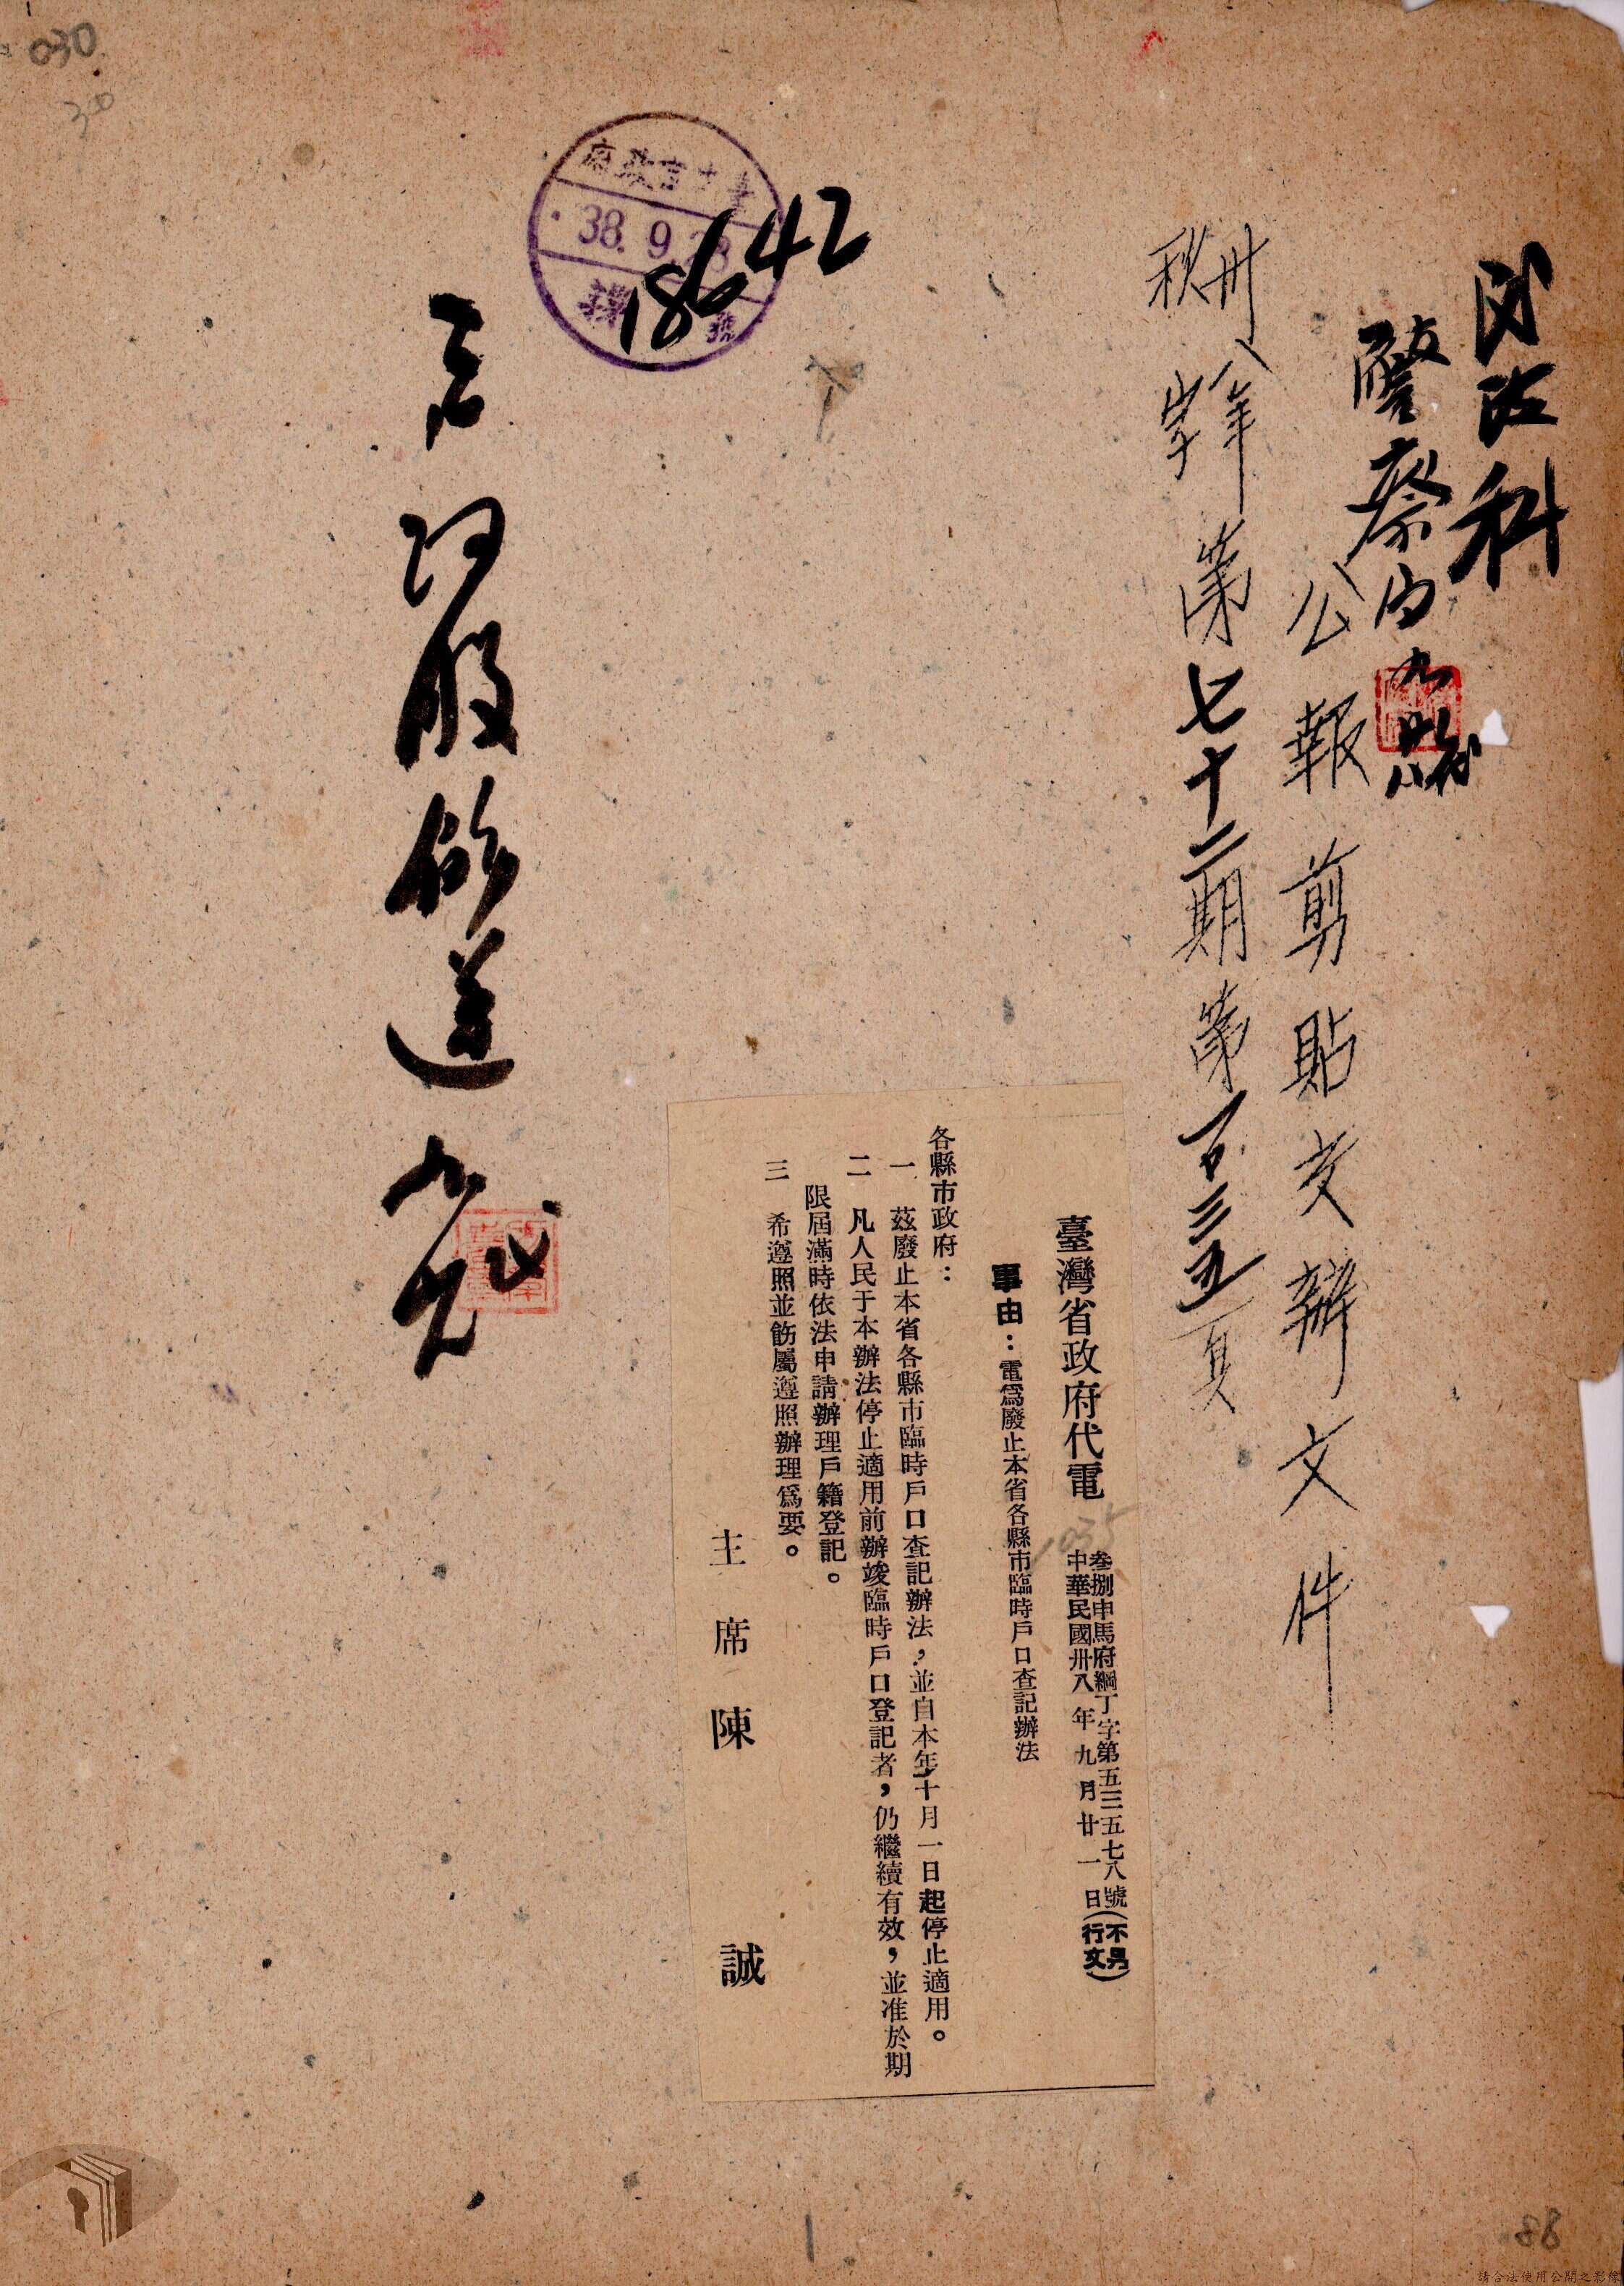 民政科
警察
公報剪貼交辦文件
卅八年
秋字第七十二期第一百三五頁
臺灣省政府代電
叁捌申馬府綱丁字第五三五七八號(不另
中華民國卅八年九月廿一日行文)
事由：電爲廢止本省各縣市臨時戶口查記辦法
各縣市政府：
一 茲廢止本省各縣市臨時戶口查記辦法，並自本年十月一日起停止適用。
二 凡人民于本辦法停止適用前辦竣臨時戶口登記者，仍繼續有效，並准於期
限屆滿時依法申請辦理戶籍登記。
三 希遵照並飭屬遵照辦理爲要。
主席 陳誠
1035
38.9.28
號
18642
030
30
88
請合法使用公開之影像